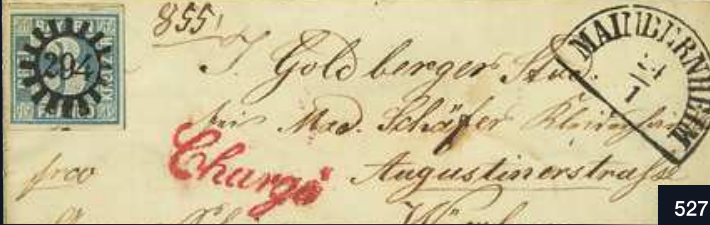 855
294
MAINBERNHEIM
24
1
J. Goldberger Stud.
bei Mad. Schäfer
Chargé
frco
Augustinerstrasse
527